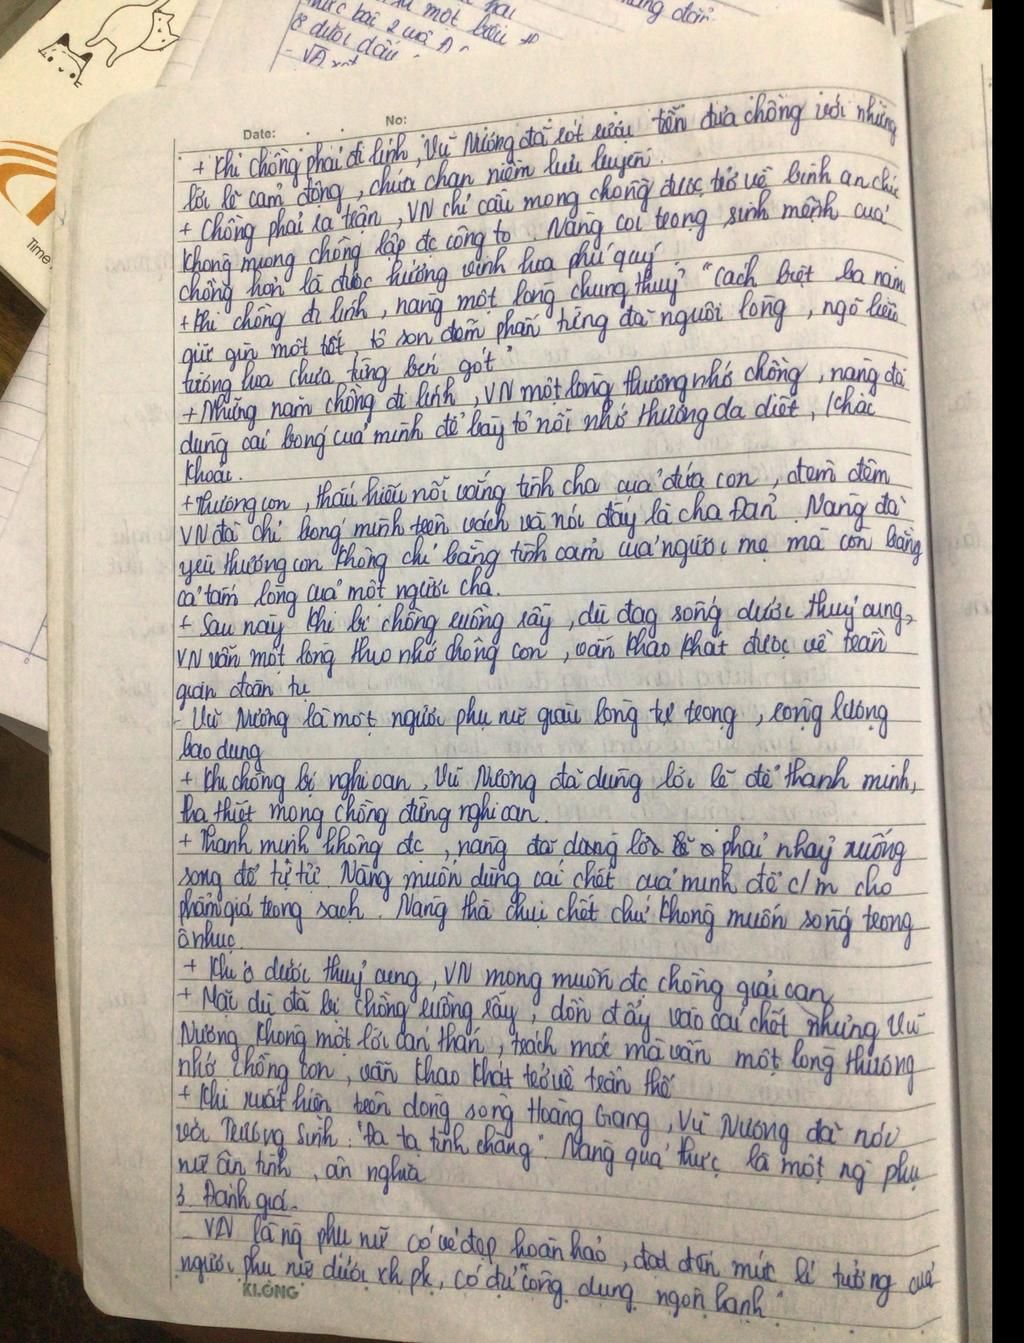 một bài
bài 2 của A
dưới dấu
- √A
Time
Date: . . No:
+ Khi chồng phải đi lính, Vũ Nương đã rót rượu tiễn đưa chồng với những
lời lẽ cảm động, chứa chan niềm lưu luyến.
+ Chồng phải ra trận, VN chỉ cầu mong chồng được trở về bình an chứ
không mong chồng lập đc công to. Nàng coi trọng sinh mệnh của
chồng hơn là được hưởng vinh hoa phú quý.
+ Khi chồng đi lính, nàng một lòng chung thuỷ "cách biệt ba năm
giữ gìn một tiết, tô son điểm phấn từng đã nguôi lòng, ngõ liễu
tường hoa chưa từng bén gót"
+ Những năm chồng đi lính, VN một lòng thương nhớ chồng, nàng đã
dùng cái bóng của mình để bày tỏ nỗi nhớ thương da diết, khắc
khoải.
+ Thương con, thấu hiểu nỗi vắng tình cha của đứa con, đêm đêm
VN đã chỉ bóng mình trên vách và nói đấy là cha Đản. Nàng đã
yêu thương con không chỉ bằng tình cảm của người mẹ mà còn bằng
cả tấm lòng của một người cha.
+ Sau này khi bị chồng ruồng rẫy, dù đag sống dưới thuỷ cung,
VN vẫn một lòng thươ nhớ chồng con, vẫn khao khát được về trần
gian đoàn tụ
- Vũ Nương là một người phụ nữ giàu lòng tự trọng, rộng lượng
bao dung
+ Khi chồng bị nghi oan, Vũ Nương đã dùng lời lẽ để thanh minh,
tha thiết mong chồng đừng nghi oan.
+ Thanh minh không đc, nàng đã dùng lời phải nhảy xuống
sông để tự tử. Nàng muốn dùng cái chết của mình để c/m cho
phẩm giá trong sạch. Nàng thà chịu chết chứ không muốn sống trong
ô nhục.
+ Khi ở dưới thuỷ cung, VN mong muốn đc chồng giải oan
+ Mặc dù đã bị chồng ruồng rẫy, dồn đẩy vào cái chết nhưng Vũ
Nương không một lời oán thán, trách móc mà vẫn một lòng thương
nhớ chồng con, vẫn khao khát trở về trần thế
+ Khi xuất hiện trên dòng sông Hoàng Giang, Vũ Nương đã nói
với Trương Sinh: "Đa tạ tình chàng". Nàng quả thực là một ng phụ
nữ ân tình, ân nghĩa
3. Đánh giá.
- VN là ng phụ nữ có vẻ đẹp hoàn hảo, đạt đến mức lí tưởng của
người phụ nữ dưới xh pk, có đủ "công dung ngôn hạnh"
KLONG